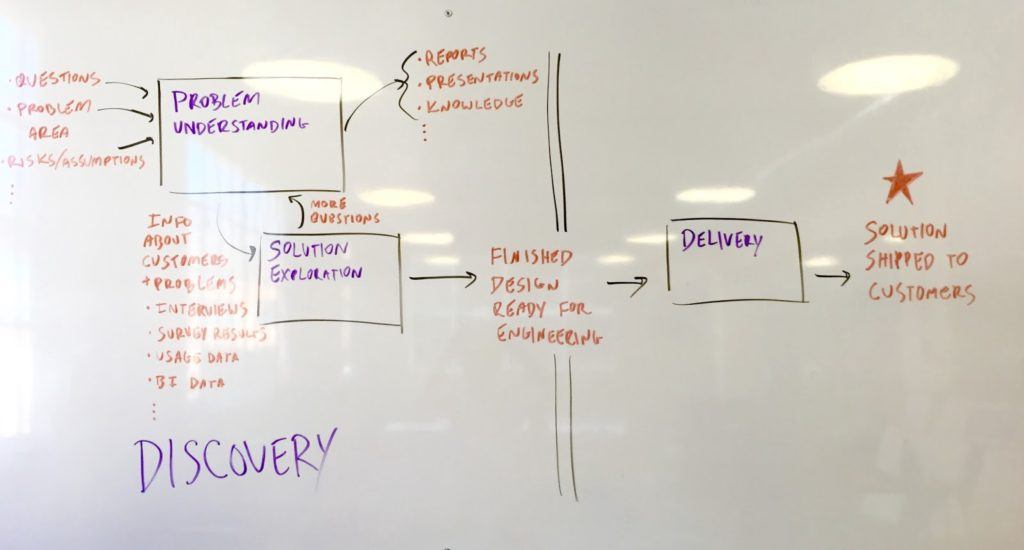 • QUESTIONS
• PROBLEM
AREA
• RISKS/ASSUMPTIONS
⋮
PROBLEM
UNDERSTANDING
• REPORTS
• PRESENTATIONS
• KNOWLEDGE
⋮
MORE
QUESTIONS
INFO
ABOUT
CUSTOMERS
+ PROBLEMS
• INTERVIEWS
• SURVEY RESULTS
• USAGE DATA
• BI DATA
⋮
SOLUTION
EXPLORATION
FINISHED
DESIGN
READY FOR
ENGINEERING
DELIVERY
SOLUTION
SHIPPED TO
CUSTOMERS
DISCOVERY